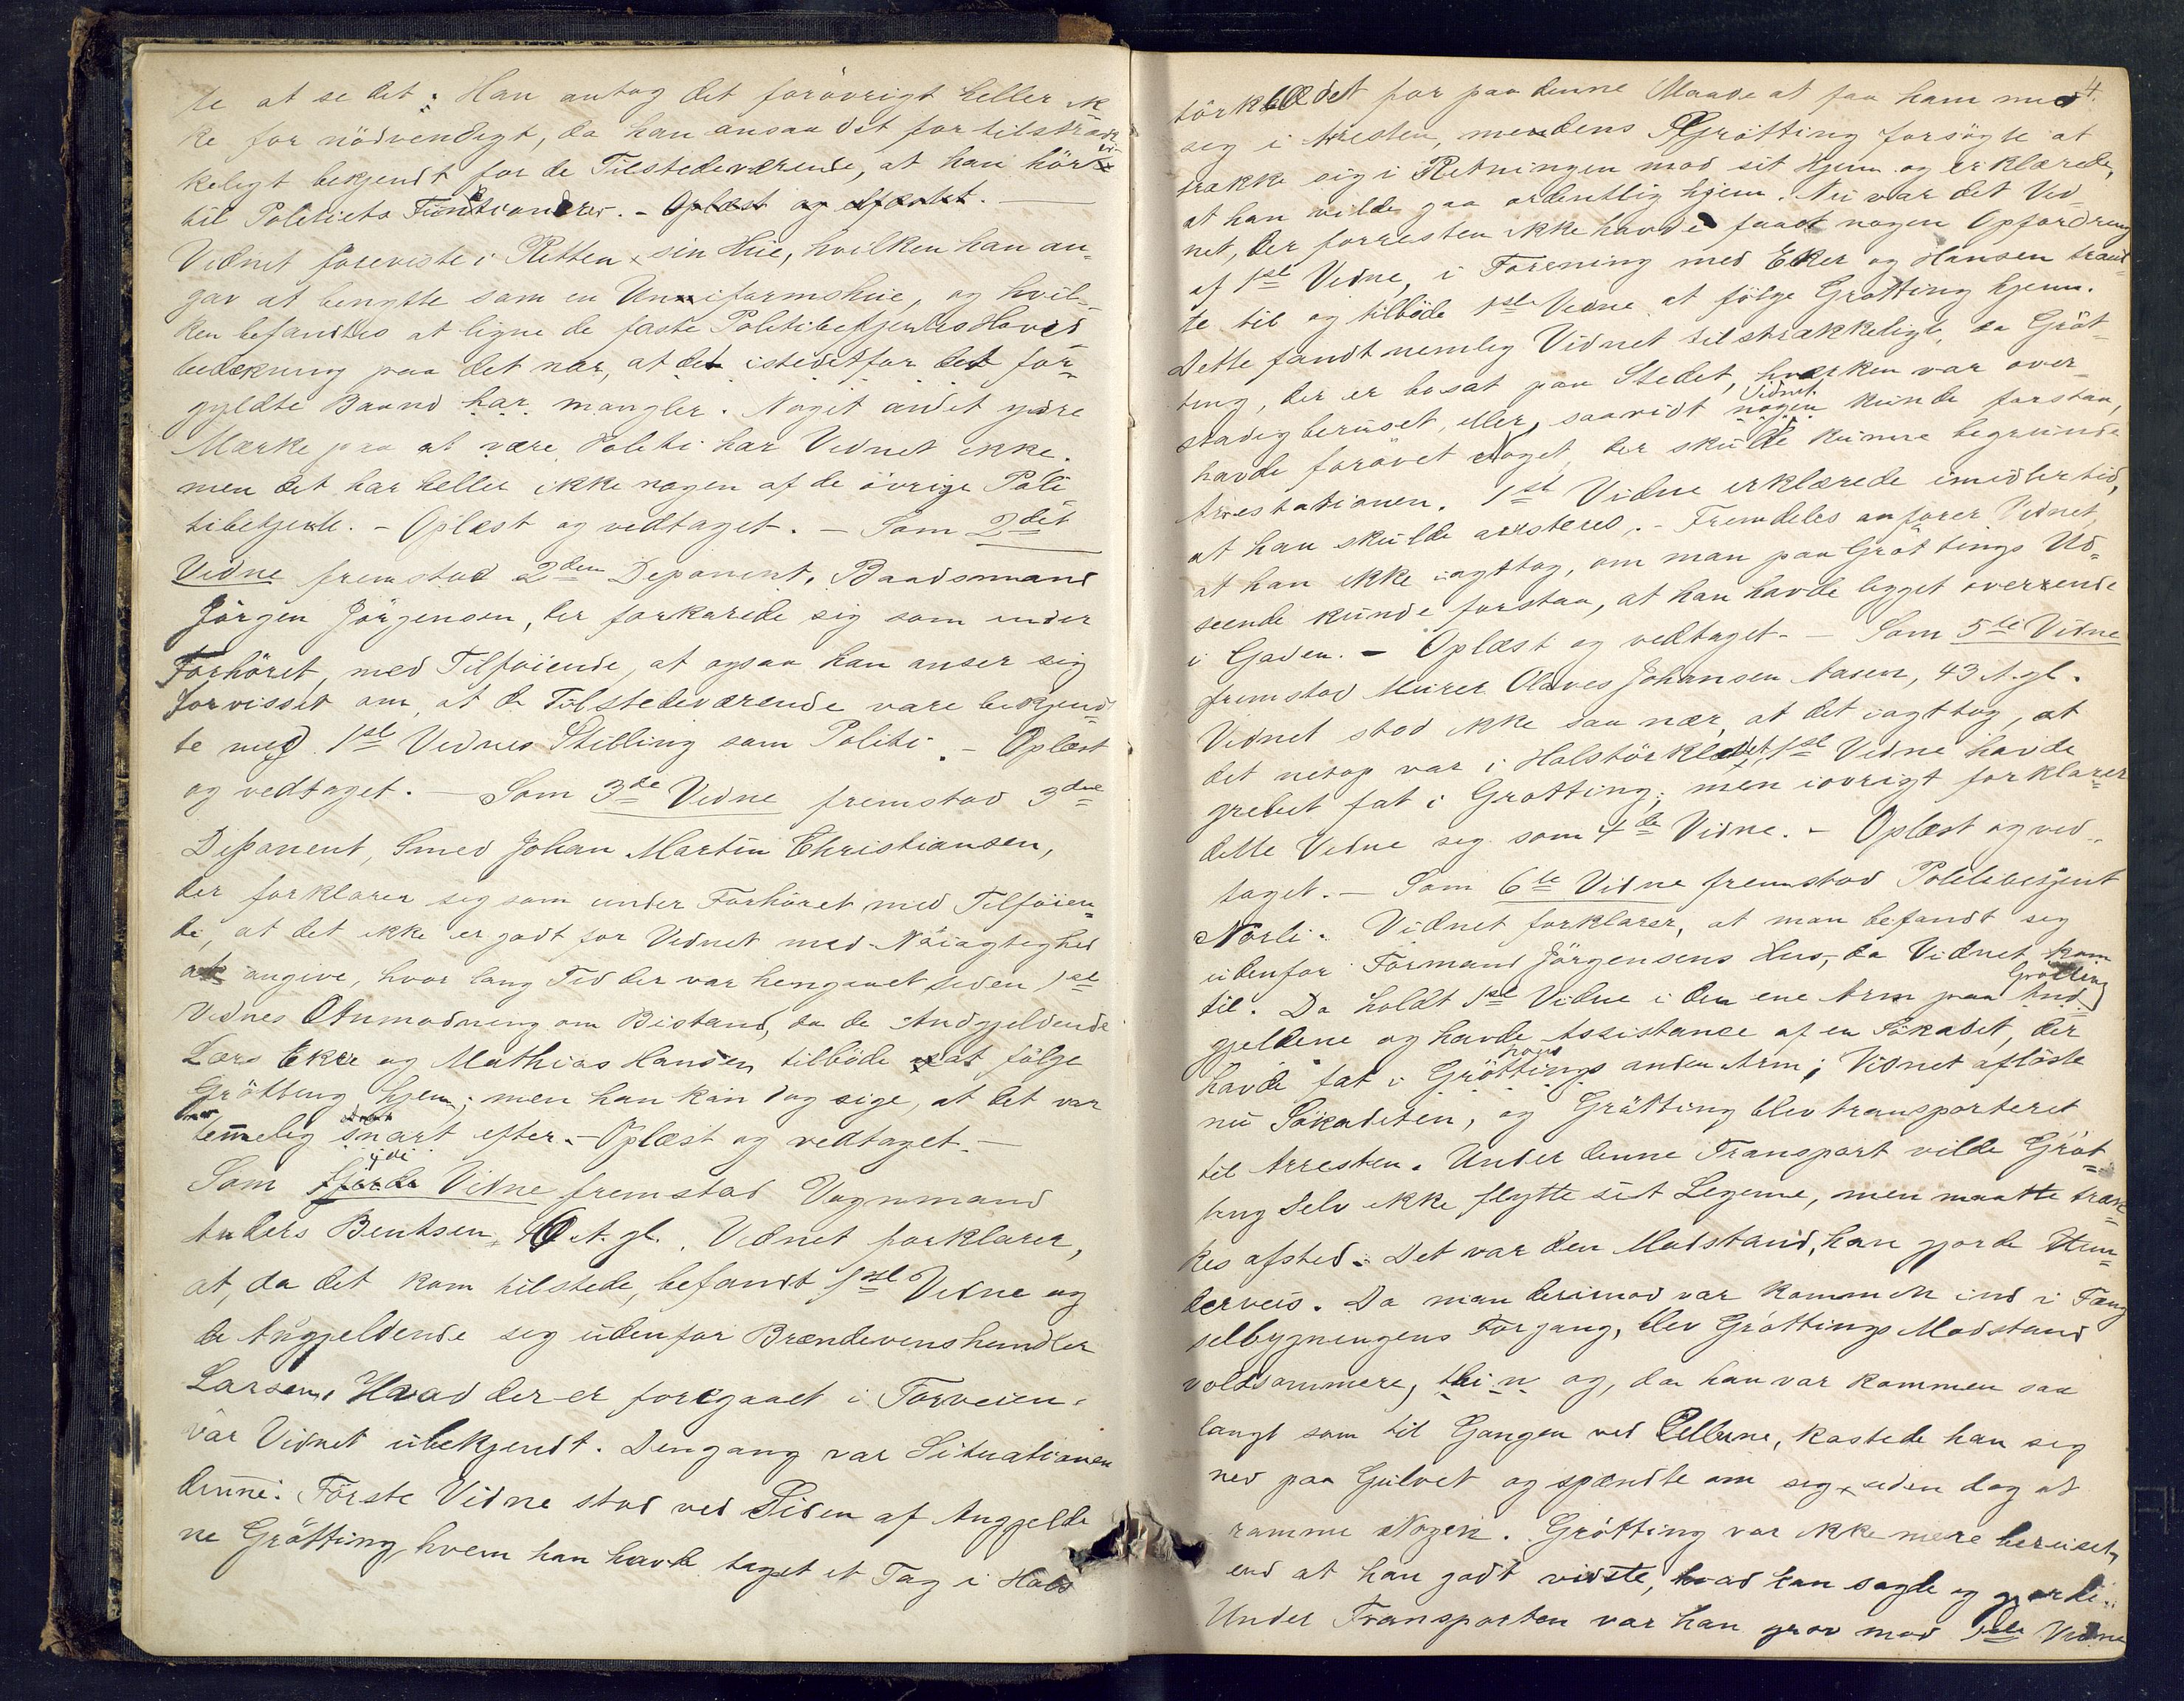 te at se det. Han antog det forövrigt heller ik
ke for nödvendigt, da han ansaa det for tilstræk
keligt bekjendt for de Tilstedeværende, at han hör
til Politiets Funktionærer. - Oplæst og vedtaget.
Vidnet foreviste i Retten sin Hue, hvilken han an-
gav at benytte som en Uniformshue, og hvil-
ken befandtes at ligne de faste Politibetjentes Hoved
bedækning paa det nær, at den istedetfor det for-
gyldte Baand har mangler. Noget andet ydre
Mærke paa at være Politi har Vidnet ikke.
men det har heller ikke nogen af de övrige Poli
tibetjente. - Oplæst og vedtaget. - Som 2det
Vidne fremstod 2den Deponent, Baadsmand
Jörgen Jörgensen, der forklarede sig som under
Forhöret, med Tilföiende, at ogsaa han anser sig
forvisset om, at de Tilstedeværende vare bekjend-
te med 1ste Vidnes Stilling som Politi. - Oplæst
og vedtaget. - Som 3de Vidne fremstod 3die
Deponent, Smed Johan Martin Christiansen,
der forklarer sig som under Forhöret med Tilföien-
de, at det ikke er godt for Vidnet med Nöiagtighed
at angive, hvor lang Tid der var hengaaet siden 1ste
Vidnes Anmodning om Bistand, da de Angjeldende
Lars Eker og Mathias Hansen tilböde at fölge
Grötting hjem; men han kan dog sige, at det var
temmelig snart efter. - Oplæst og vedtaget. -
Som fjerde 4de Vidne fremstod Vognmand
Anders Bentsen, A. gl. Vidnet forklarer,
at, da det kom tilstede, befandt 1ste Vidne og
de Angjeldende sig udenfor Brændevinshandler
Larsen. Hvad der er foregaaet i Forveien
var Vidnet ubekjendt. Dengang var Situationen
denne: Förste Vidne stod ved Siden af Angjelde
ne Grötting, hvem han havde taget et Tag i Hals
4.
törklædet for paa denne Maade at faa ham med
sig i Aresten, medens Grötting forsögte at
trække sig i Retningen mod sit Hjem og erklærede,
at han vilde gaa ordentlig hjem. Nu var det Vid-
net, der forresten ikke havde faaet nogen Opfordring
af 1ste Vidne, i Forening med Eker og Hansen traad-
te til og tilböde 1ste Vidne at fölge Grötting hjem.
Dette fandt nemlig Vidnet tilstrækkeligt, da Gröt-
ting, der er bosat paa Stedet, hverken var over-
stadig beruset, eller, saavidt Vidnet nogen kunde forstaa,
havde forövet Noget, der skulde kunne begrunde
Arrestationen. 1ste Vidne erklærede imidlertid,
at han skulde arresteres. - Fremdeles anförer Vidnet,
at han ikke iagttog, om man paa Gröttings Ud-
seende kunde forstaa, at han havde ligget overende
i Gaden. - Oplæst og vedtaget. - Som 5te Vidne
fremstod Murer Olaves Johansen Aasen, 43 A. gl.
Vidnet stod ikke saa nær, at det iagttog, at
det netop var i Halstörklædet, 1ste Vidne havde
grebet fat i Grötting; men iövrigt forklarer
dette Vidne sig som 4de Vidne. - Oplæst og ved-
taget. - Som 6te Vidne fremstod Politibetjent
Norli. Vidnet forklarer, at man befandt sig
udenfor Formand Jörgensens Hus, da Vidnet kom
til. Da holdt 1ste Vidne i den ene Arm paa Grötting An-
gjeldene og havde Assistance af en Sökadet, der
havde fat i Gröttings hans anden Arm; Vidnet aflöste
nu Sökadetten, og Grötting blev transporteret
til Arresten. Under denne Transport vilde Gröt-
ting selv ikke flytte sit Legeme, men maatte træk-
kes afsted. Det var den Modstand, han gjorde Un-
derveis. Da man derimod var kommen ind i Fæng
selbygningens Forgang, blev Gröttings Modstand
voldsommere, thi og, da han var kommen saa
langt som til Gangen ved Cellerne, kastede han sig
ned paa Gulvet og spændte om sig, uden dog at
ramme Nogen. Grötting var ikke mere beruset,
end at han godt vidste, hvad han sagde og gjorde.
Under Transporten var han grov mod 1ste Vidne